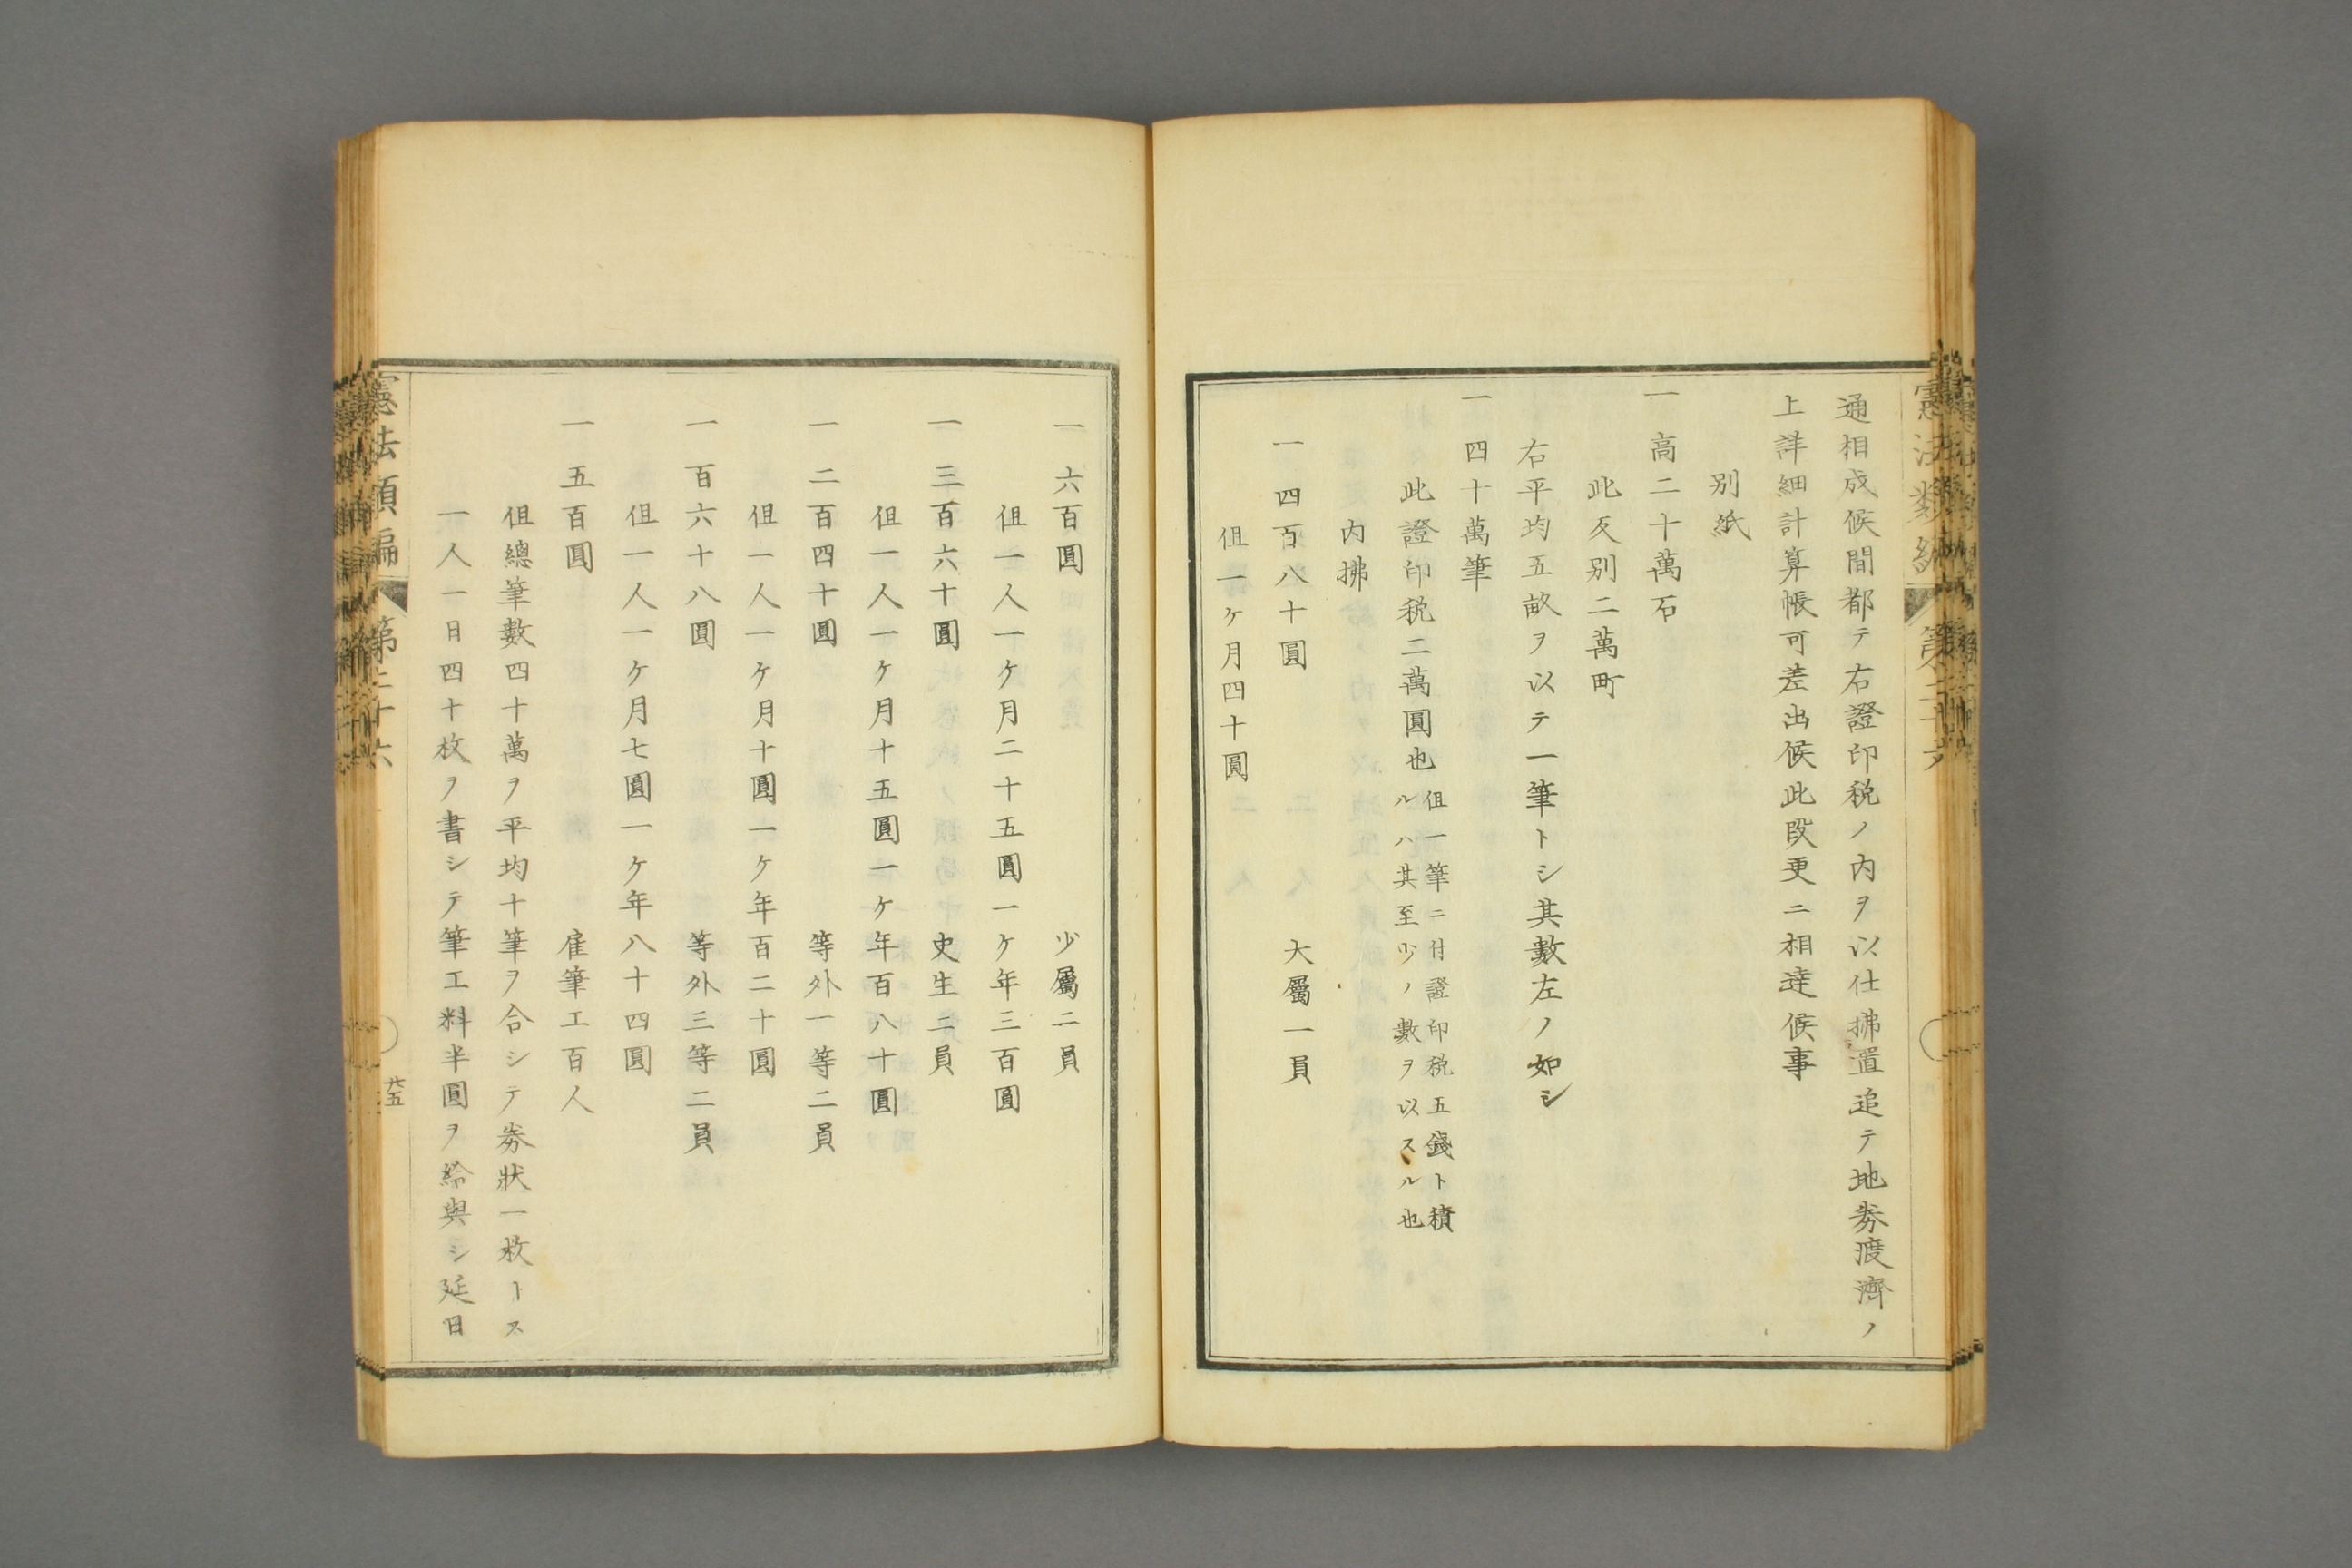 通相成候間都テ右證印税ノ内ヲ以仕拂置追テ地劵渡濟ノ
上詳細計算帳可差出候此段更ニ相達候事
別紙
一高二十萬石
此反别二萬町
右平均五畝ヲ以テ一筆トシ其數左ノ如シ
一四十萬筆
此證印税二萬圓也
伹一筆ニ付證印税五錢ト積
ルハ其至少ノ數ヲ以スル也
内拂
一四百八十圓 大屬一員
伹一ケ月四十圓
一六百圓 少屬二員
伹一人一ケ月二十五圓一ケ年三百圓
一三百六十圓 史生二員
伹一人一ケ月十五圓一ケ年百八十圓
一二百四十圓 等外一等二員
伹一人一ケ月十圓一ケ年百二十圓
一百六十八圓 等外三等二員
伹一人一ケ月七圓一ケ年八十四圓
一五百圓 雇筆工百人
伹總筆數四十萬ヲ平均十筆ヲ合シテ劵狀一枚トス
一人一日四十枚ヲ書シテ筆工料半圓ヲ給與シ延日
憲法類編 第二十六
廿五